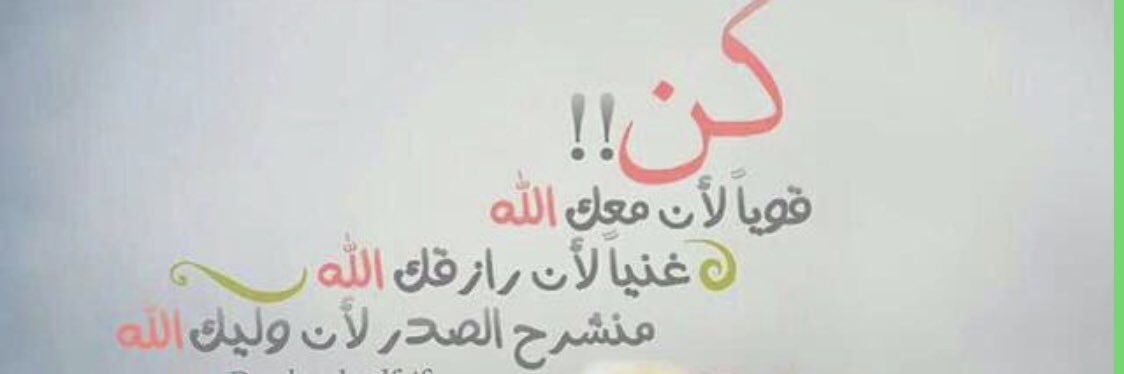 كن!!
قوياً لأن معك الله
غنياً لأن رازقك الله
منشرح الصدر لأن وليك الله